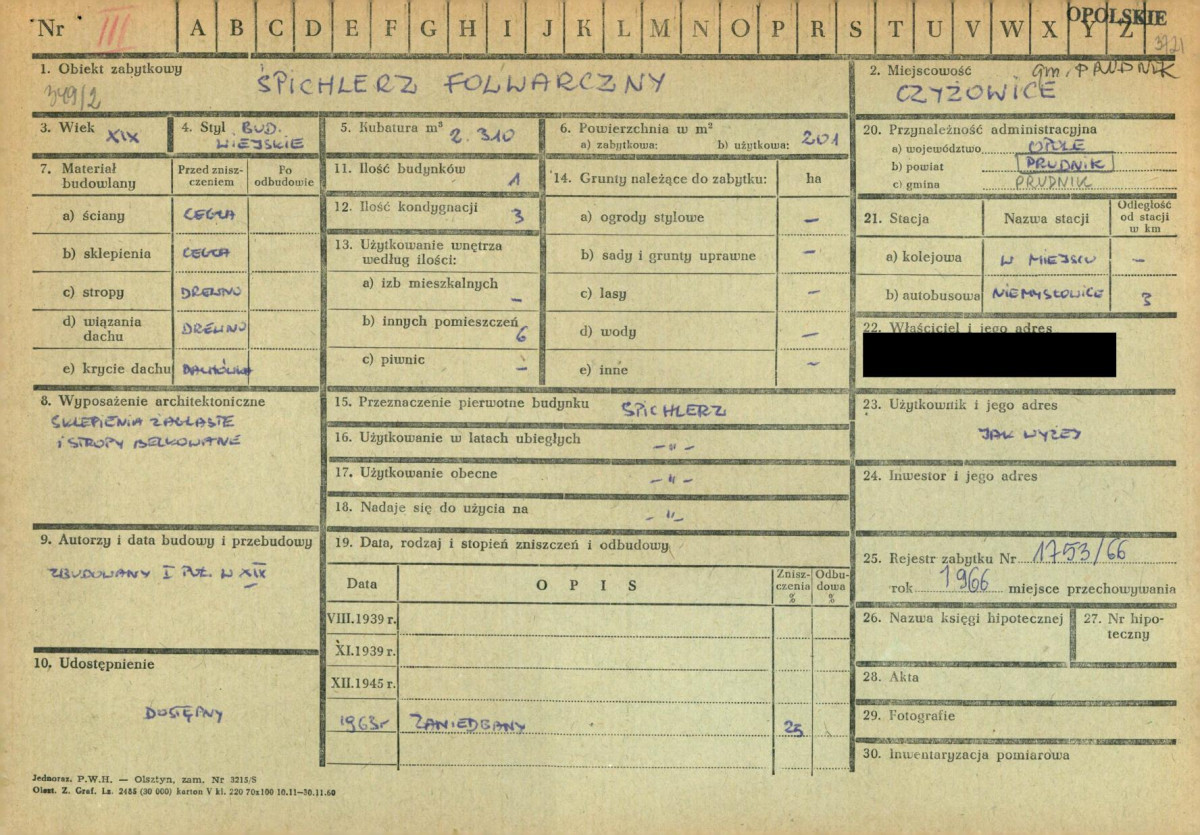 Nr III A B C D E F G H I J K L M N O P R S T U V W X Y Z OPOLSKIE
3721
1. Obiekt zabytkowy
ŚPICHLERZ FOLWARCZNY
349/2
2. Miejscowość gm. PRUDNIK
CZYŻOWICE
3. Wiek XIX
4. Styl BUD. WIEJSKIE
5. Kubatura m³ 2.310
6. Powierzchnia w m²
a) zabytkowa: b) użytkowa: 201
7. Materiał budowlany
Przed zniszczeniem
Po odbudowie
a) ściany CEGŁA
b) sklepienia CEGŁA
c) stropy DREWNO
d) wiązania dachu DREWNO
e) krycie dachu DACHÓWKA
8. Wyposażenie architektoniczne
SKLEPIENIA ŻAGLASTE
i STROPY BELKOWANE
9. Autorzy i data budowy i przebudowy
ZBUDOWANY I POŁ. W XIX
10. Udostępnienie
DOSTĘPNY
11. Ilość budynków 1
12. Ilość kondygnacji 3
13. Użytkowanie wnętrza
według ilości:
a) izb mieszkalnych –
b) innych pomieszczeń 6
c) piwnic –
14. Grunty należące do zabytku: ha
a) ogrody stylowe –
b) sady i grunty uprawne –
c) lasy –
d) wody –
e) inne –
15. Przeznaczenie pierwotne budynku ŚPICHLERZ
16. Użytkowanie w latach ubiegłych – " –
17. Użytkowanie obecne – " –
18. Nadaje się do użycia na – " –
19. Data, rodzaj i stopień zniszczeń i odbudowy
Data OPIS Zniszczenia % Odbudowa %
VIII.1939 r.
XI.1939 r.
XII.1945 r.
1963r ZANIEDBANY 25
20. Przynależność administracyjna
a) województwo OPOLE
b) powiat PRUDNIK
c) gmina PRUDNIK
21. Stacja Nazwa stacji Odległość od stacji w km
a) kolejowa W MIEJSCU –
b) autobusowa NIEMYSŁOWICE 3
22. Właściciel i jego adres
23. Użytkownik i jego adres
JAK WYŻEJ
24. Inwestor i jego adres
25. Rejestr zabytku Nr 1753/66
rok 1966 miejsce przechowywania
26. Nazwa księgi hipotecznej
27. Nr hipoteczny
28. Akta
29. Fotografie
30. Inwentaryzacja pomiarowa
Jednoraz. P.W.H. — Olsztyn, zam. Nr 3215/S
Olszt. Z. Graf. Lz. 2485 (30 000) karton V kl. 220 70x100 10.11—30.11.60